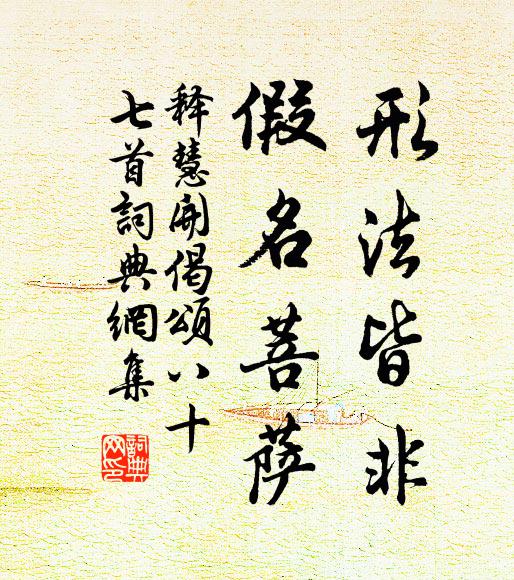 形法皆非
假名菩萨
释慧开偈颂八十
七首詞典網集
詞典
网印